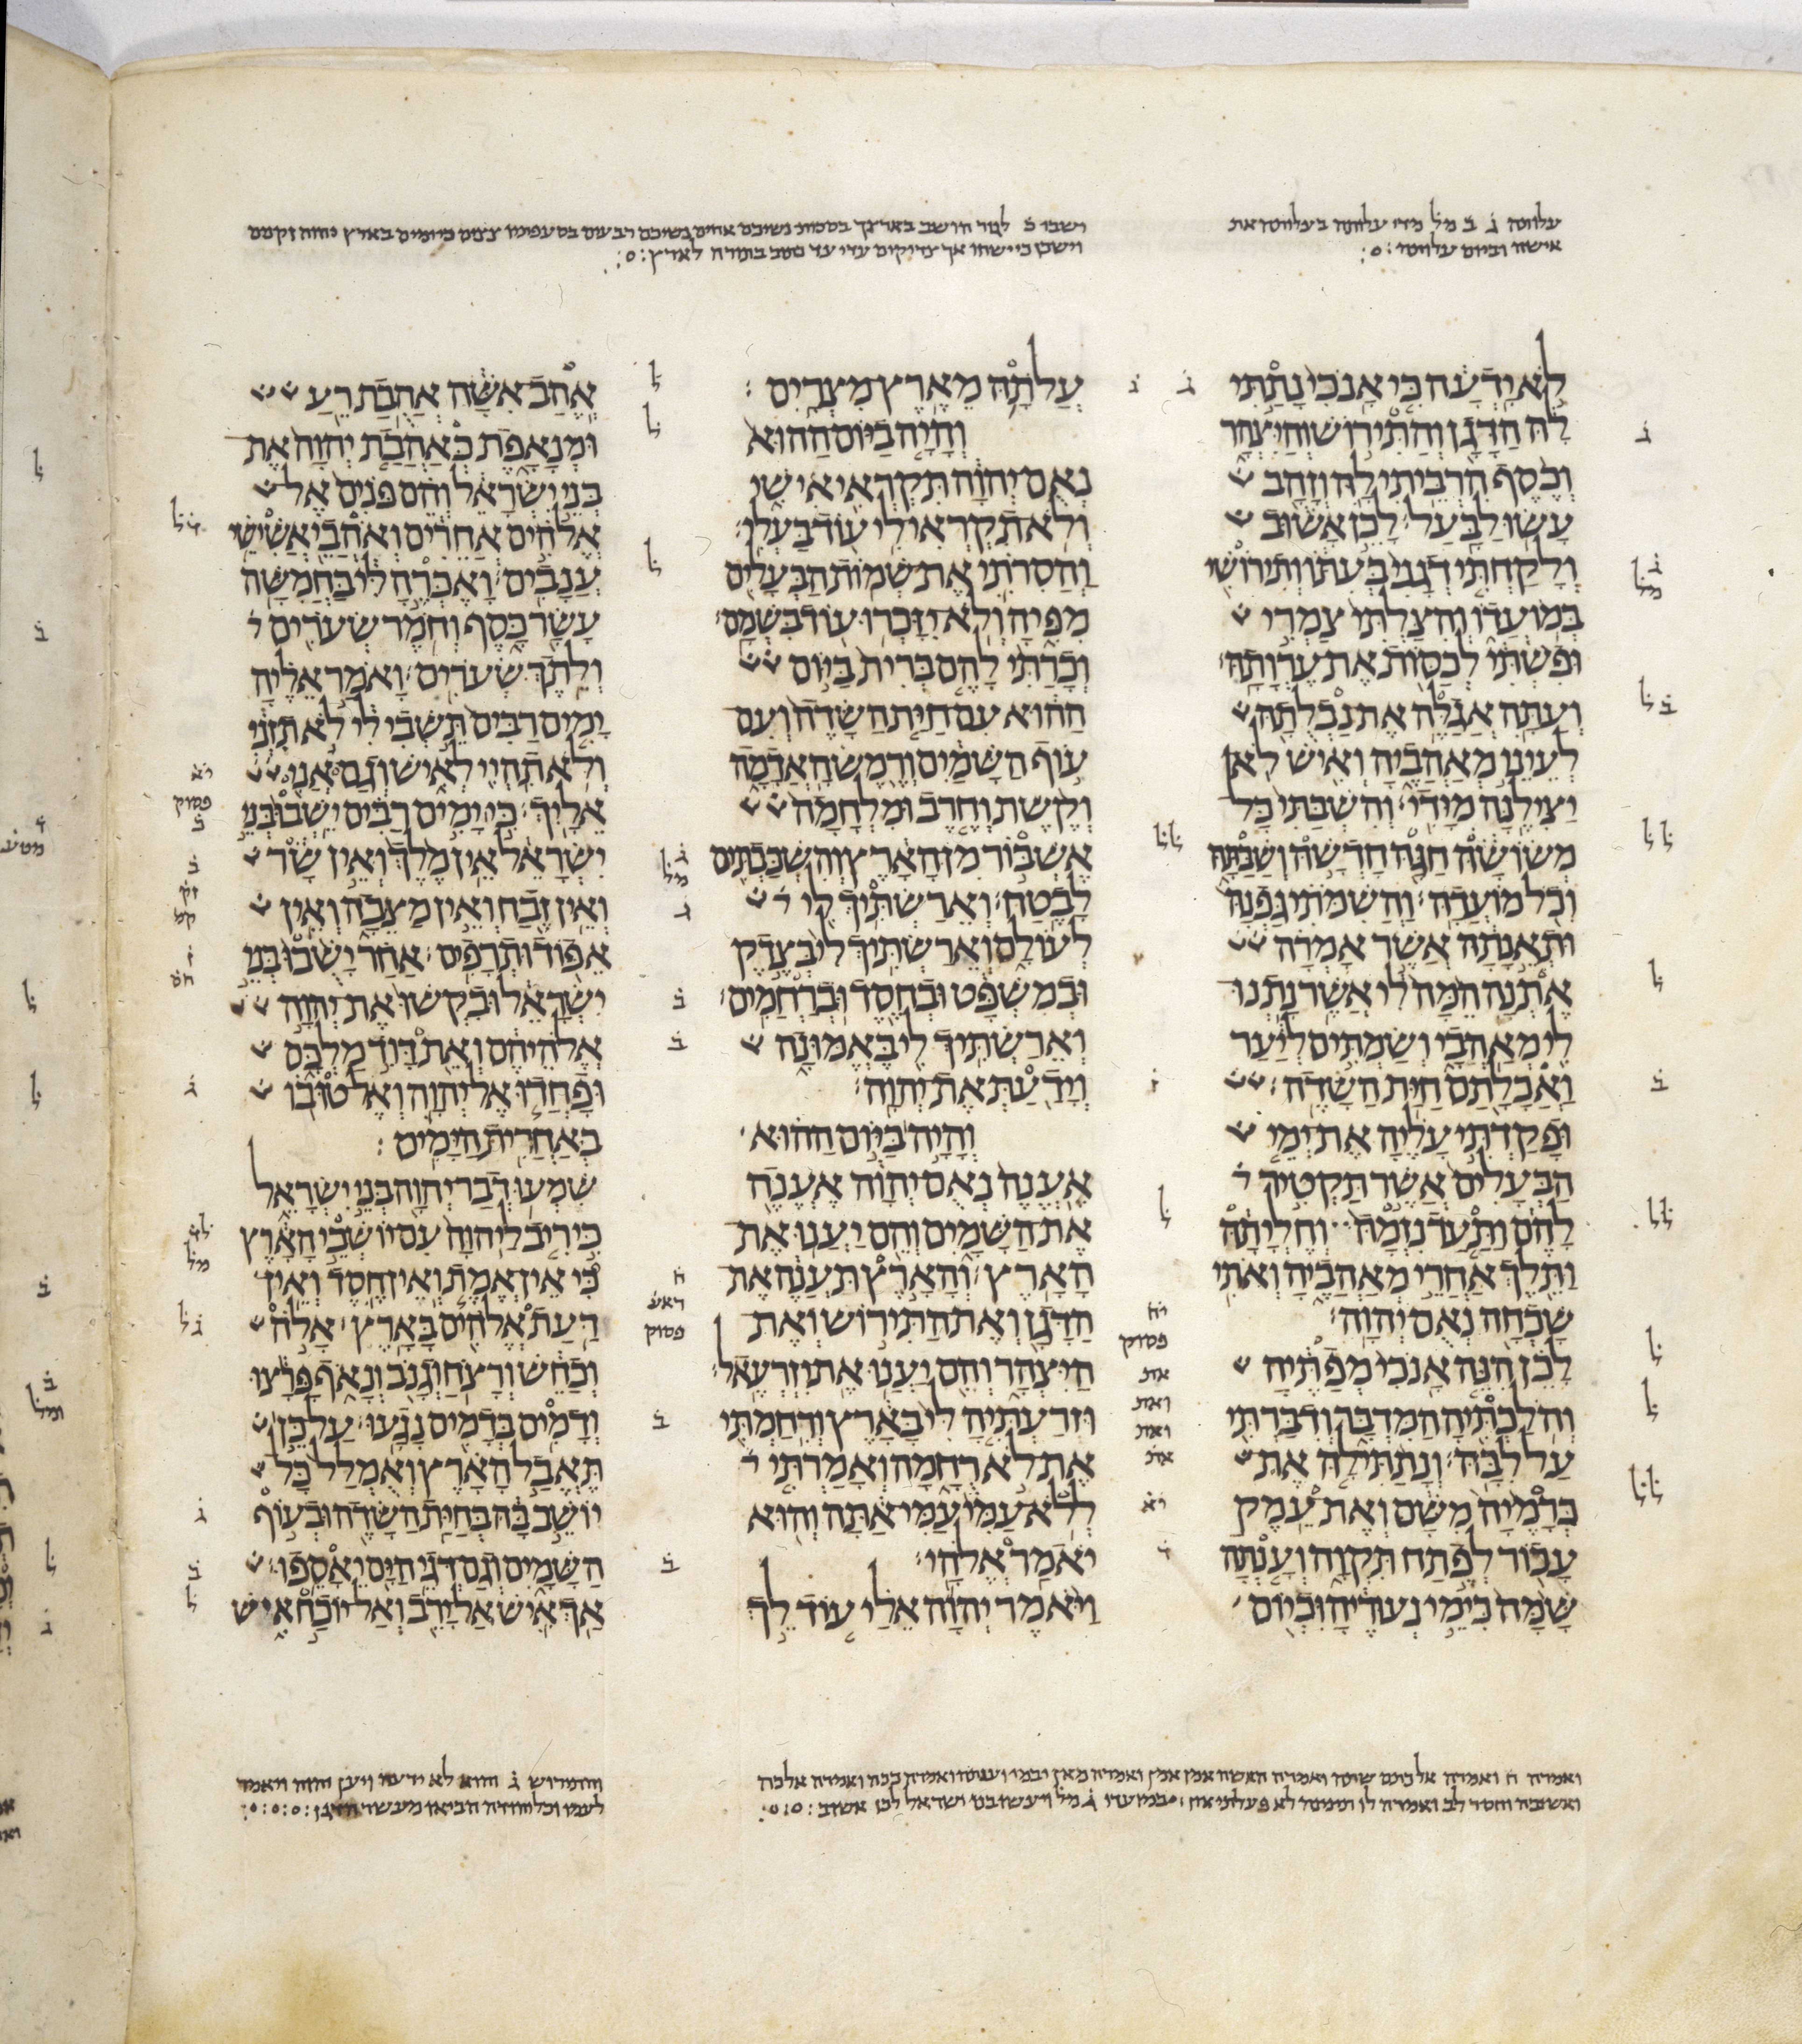 לא ידעה כי אנכי נתתי
לה הדגן והתירוש והיצהר
וכסף הרביתי לה וזהב
עשו לבעל׃ לכן אשוב
ולקחתי דגני בעתו ותירושי
במועדו והצלתי צמרי
ופשתי לכסות את ערותה׃
ועתה אגלה את נבלתה
לעיני מאהביה ואיש לא
יצילנה מידי׃ והשבתי כל
משושה חגה חדשה ושבתה
וכל מועדה׃ והשמתי גפנה
ותאנתה אשר אמרה
אתנה המה לי אשר נתנו
לי מאהבי ושמתים ליער
ואכלתם חית השדה׃
ופקדתי עליה את ימי
הבעלים אשר תקטיר
להם ותעד נזמה וחליתה
ותלך אחרי מאהביה ואתי
שכחה נאם יהוה׃
לכן הנה אנכי מפתיה
והלכתיה המדבר ודברתי
על לבה׃ ונתתי לה את
כרמיה משם ואת עמק
עכור לפתח תקוה וענתה
שמה כימי נעוריה וכיום
עלתה מארץ מצרים׃
והיה ביום ההוא
נאם יהוה תקראי אישי
ולא תקראי לי עוד בעלי׃
והסרתי את שמות הבעלים
מפיה ולא יזכרו עוד בשמם׃
וכרתי להם ברית ביום
ההוא עם חית השדה ועם
עוף השמים ורמש האדמה
וקשת וחרב ומלחמה
אשבור מן הארץ והשכבתים
לבטח׃ וארשתיך לי
לעולם וארשתיך לי בצדק
ובמשפט ובחסד וברחמים׃
וארשתיך לי באמונה
וידעת את יהוה׃
והיה ביום ההוא
אענה נאם יהוה אענה
את השמים והם יענו את
הארץ׃ והארץ תענה את
הדגן ואת התירוש ואת
היצהר והם יענו את יזרעאל׃
וזרעתיה לי בארץ ורחמתי
את לא רחמה ואמרתי
ללא עמי עמי אתה והוא
יאמר אלהי׃
ויאמר יהוה אלי עוד לך
אהב אשה אהבת רע
ומנאפת כאהבת יהוה את
בני ישראל והם פנים אל
אלהים אחרים ואהבי אשישי
ענבים׃ ואכרה לי בחמשה
עשר כסף וחמר שערים
ולתך שערים׃ ואמר אליה
ימים רבים תשבי לי לא תזני
ולא תהיי לאיש וגם אני
אליך׃ כי ימים רבים ישבו בני
ישראל אין מלך ואין שר
ואין זבח ואין מצבה ואין
אפוד ותרפים׃ אחר ישבו בני
ישראל ובקשו את יהוה
אלהיהם ואת דויד מלכם
ופחדו אל יהוה ואל טובו
באחרית הימים׃
שמעו דבר יהוה בני ישראל
כי ריב ליהוה עם יושבי הארץ
כי אין אמת ואין חסד ואין
דעת אלהים בארץ׃ אלה
וכחש ורצח וגנב ונאף פרצו
ודמים בדמים נגעו׃ על כן
תאבל הארץ ואמלל כל
יושב בה בחית השדה ובעוף
השמים וגם דגי הים יאספו׃
אך איש אל ירב ואל יוכח איש
והתירוש ג והיא לא ידעה ויען יהוה ויאמר
לעמו וכל יהודה הביאו מעשר הדגן